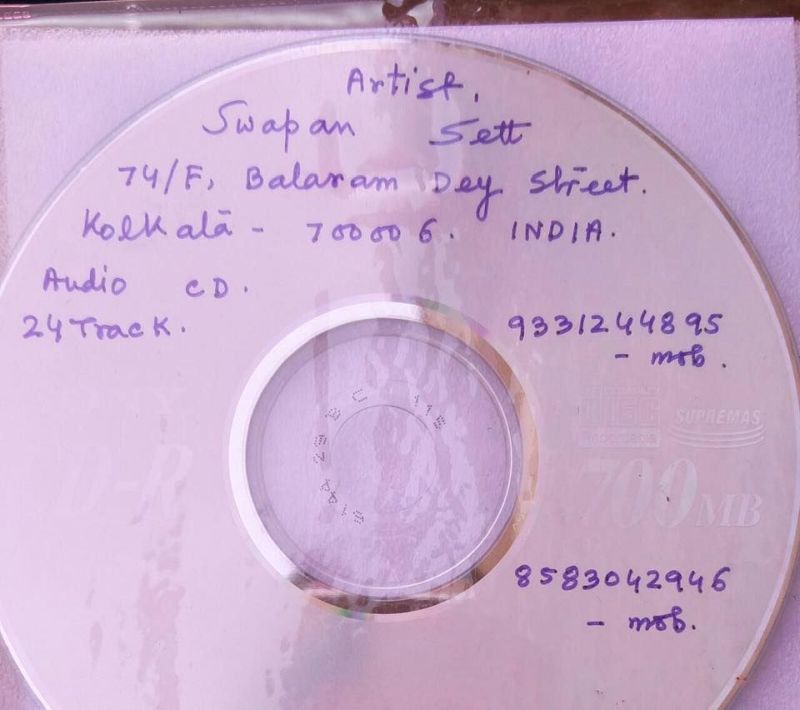 Artist,
Swapan Sett
74/F, Balaram Dey Street.
Kolkata - 700006. INDIA.
Audio CD.
24 Track.
9331244895
- mob.
SUPREMAS
D-R
700MB
8583042946
- mob.